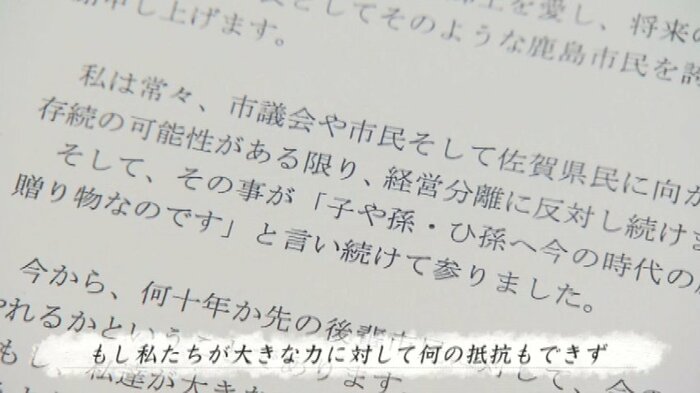 を愛し、将来の
申し上げます。
としてそのような鹿島市民を誇
私は常々、市議会や市民そして佐賀県民に向か
存続の可能性がある限り、経営分離に反対し続けま
そして、その事が「子や孫・ひ孫へ今の時代の
贈り物なのです」と言い続けて参りました。
今から、何十年か先の後輩
やれるかという
もし、私達が大きな
もし私たちが大きな力に対して何の抵抗もできず